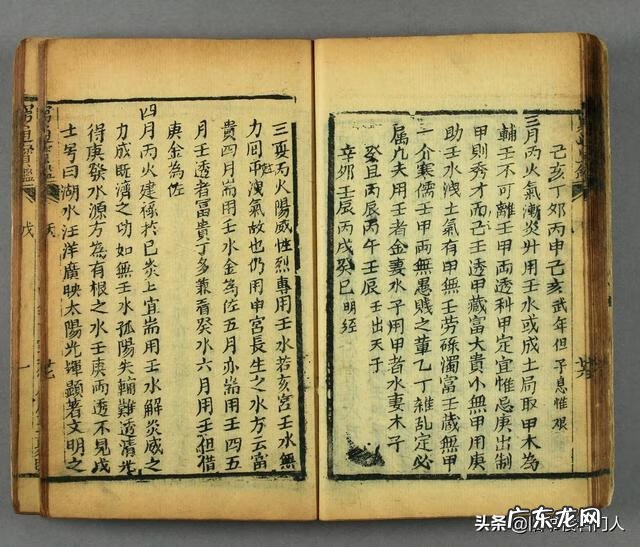 己亥丁夘丙申己亥 武年但子息惟艰
三月丙火氣漸炎升用壬水或成土局取甲木為
輔壬不可離壬甲兩透科甲定宜惟忌庚出制
甲則秀才而己壬透甲藏富大貴小無甲用庚
助壬水洩土氣有甲無壬劳碌濁富壬藏無甲
一介寒儒壬甲兩無愚贱之軰乙丁雜乱定必
属凢夫用壬者金妻水子用甲者水妻木子
癸丑丙辰丙午壬辰 壬出天子
辛夘壬辰丙戌癸巳 明經
三夏丙火陽威性烈專用壬水若亥宮壬水無
力回尅洩氣故也仍用申宮長生之水方云富
貴四月耑用壬水金為佐五月亦耑用壬四五
月壬透者富貴丁多兼看癸水六月用壬但借
庚金為佐
四月丙火建禄於巳炎上宜耑用壬水解炎威之
力成既濟之功如無壬水孤陽失輔難透清光
得庚發水源方為有根之水壬庚兩透不見戊
士号曰湖水汪洋廣映太陽光輝顯著文明之
窮通寳鑑
头条
门人
广东龙网